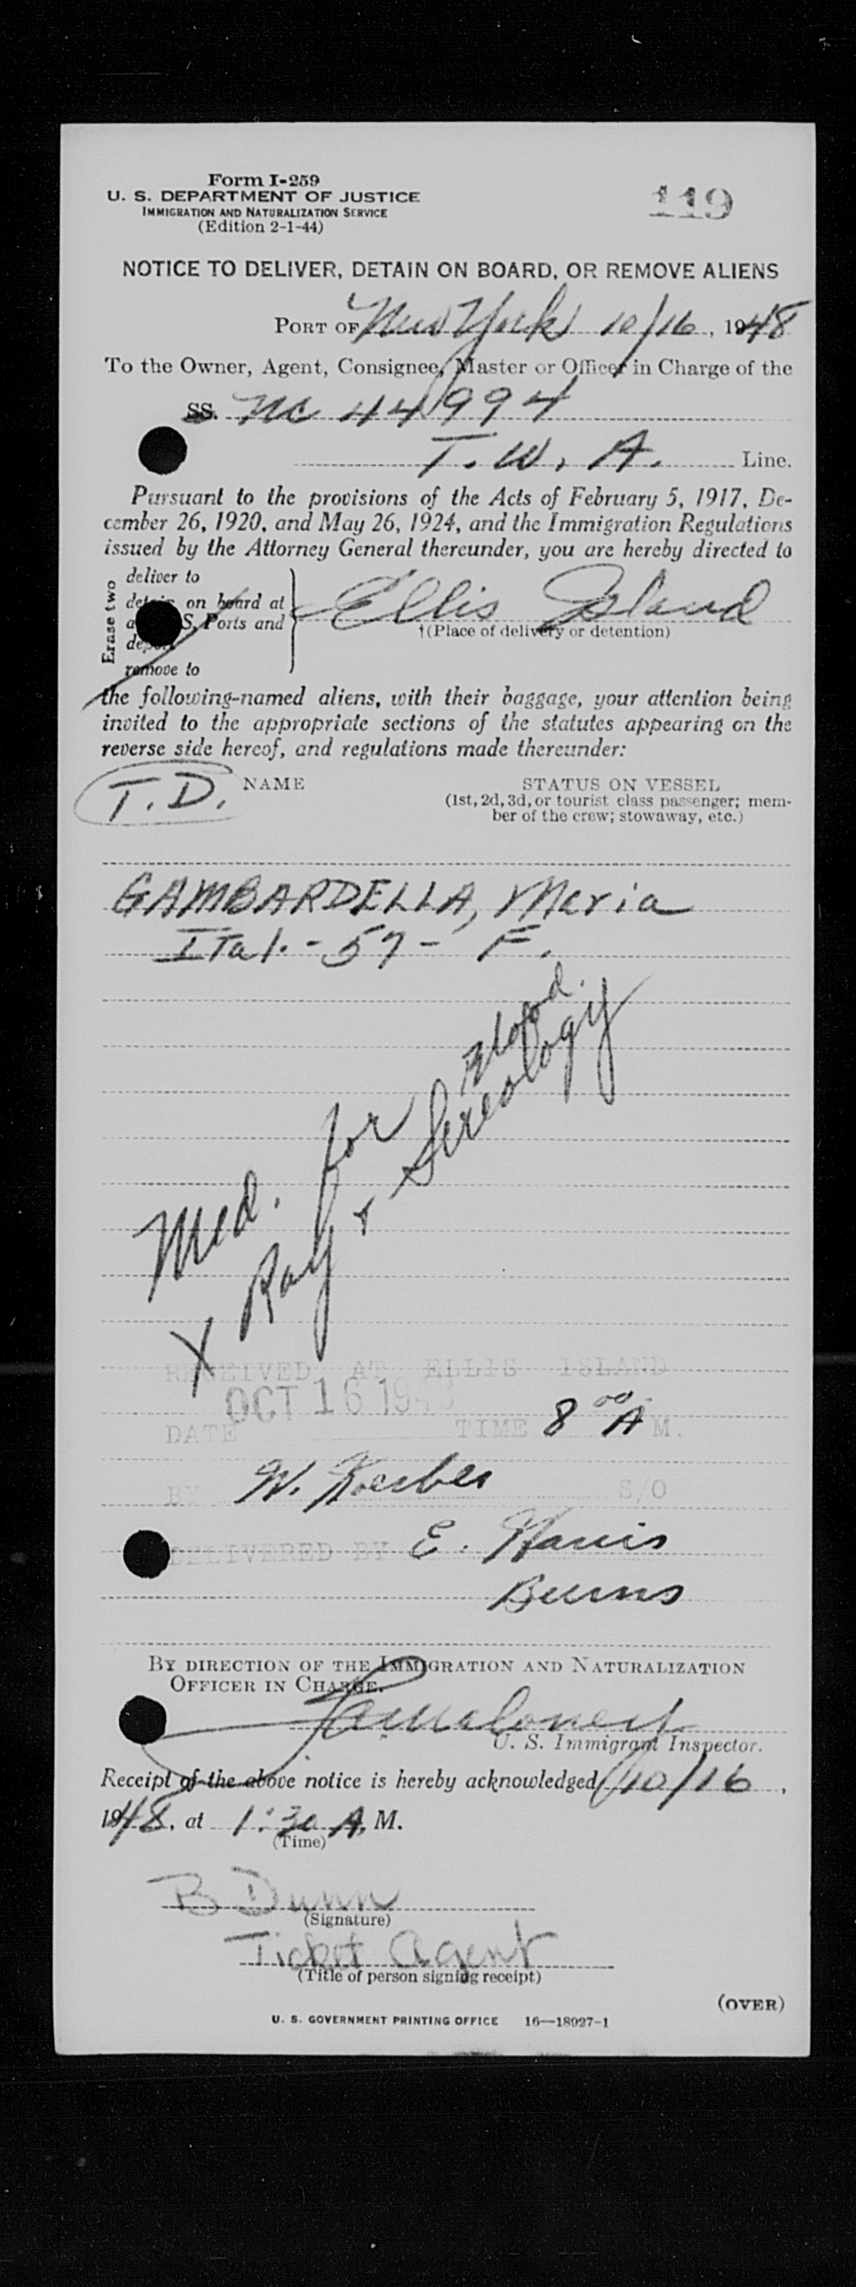 Form I-259
U. S. DEPARTMENT OF JUSTICE
IMMIGRATION AND NATURALIZATION SERVICE
(Edition 2-1-44)
119
NOTICE TO DELIVER, DETAIN ON BOARD, OR REMOVE ALIENS
PORT OF New York 10/16, 1948
To the Owner, Agent, Consignee, Master or Officer in Charge of the
SS. NC 44994
T. W. A. Line.
Pursuant to the provisions of the Acts of February 5, 1917, De-
cember 26, 1920, and May 26, 1924, and the Immigration Regulations
issued by the Attorney General thereunder, you are hereby directed to
Erase two
deliver to
on board at
S. Ports and
remove to
Ellis Island
†(Place of delivery or detention)
the following-named aliens, with their baggage, your attention being
invited to the appropriate sections of the statutes appearing on the
reverse side hereof, and regulations made thereunder:
T. D. NAME
STATUS ON VESSEL
(1st, 2d, 3d, or tourist class passenger; mem-
ber of the crew; stowaway, etc.)
GAMBARDELLA, Maria
Ital. - 57 - F.
Med. for Blood
X Ray + Sereology
RECEIVED AT ELLIS ISLAND
OCT 16 1948
DATE TIME 8 00 A M.
BY W. S/O
DELIVERED BY E.
Burns
BY DIRECTION OF THE IMMIGRATION AND NATURALIZATION
OFFICER IN CHARGE.
U. S. Immigrant Inspector.
Receipt of the above notice is hereby acknowledged 10/16,
1948, at 1:30 A. M.
(Time)
B Dunn
(Signature)
Ticket Agent
(Title of person signing receipt)
(OVER)
U. S. GOVERNMENT PRINTING OFFICE 16—18927-1